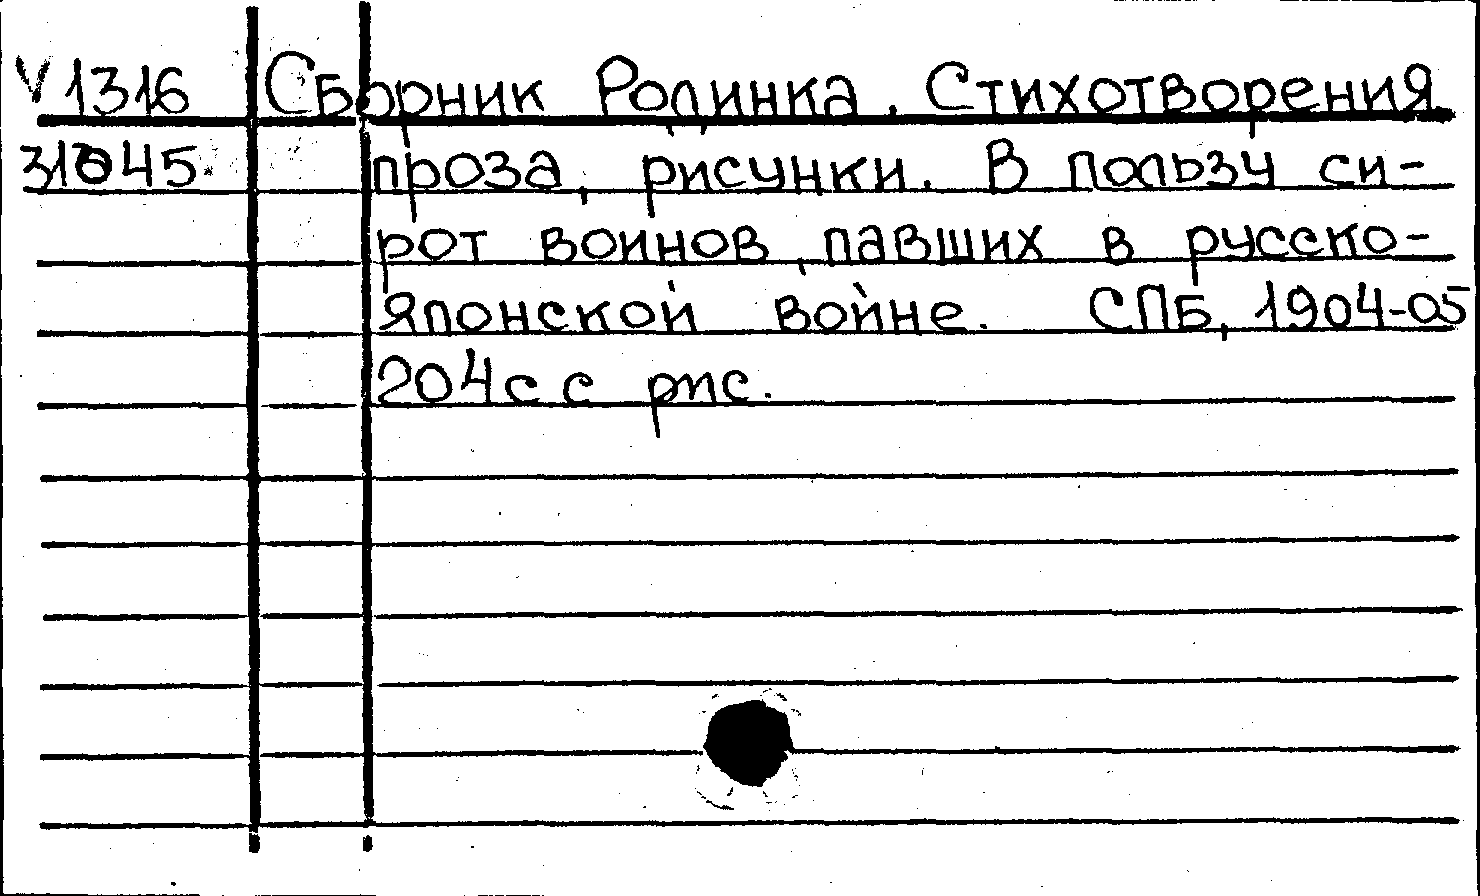 V 1316 Сборник Родинка. Стихотворения
31045 проза, рисунки. В пользу си-
рот воинов, павших в русско-
японской войне. СПБ, 1904-05
204с с рис.